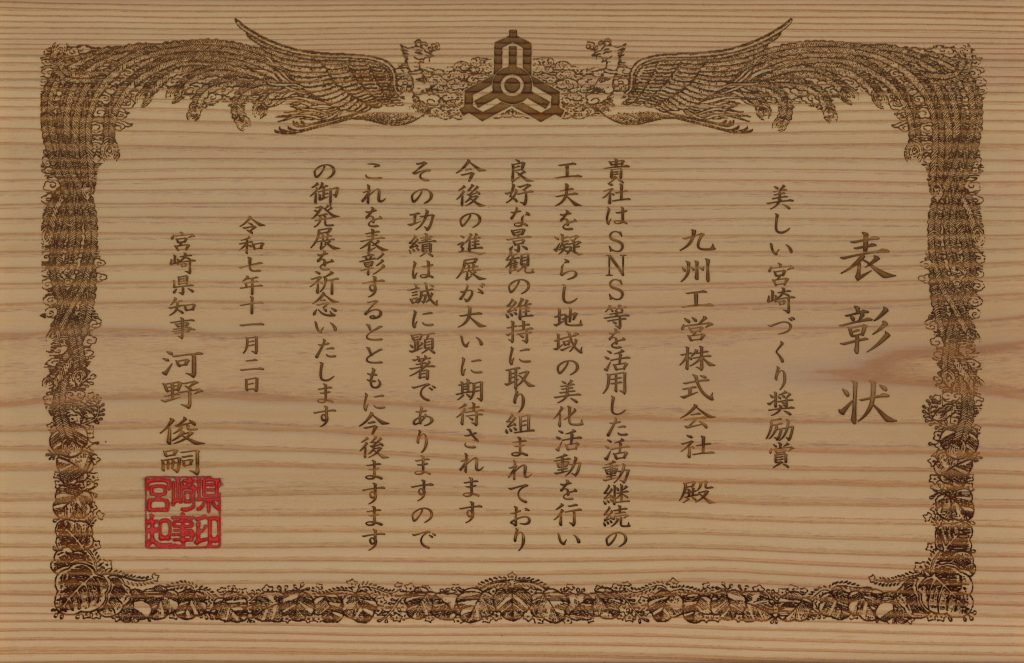 表彰状
美しい宮崎づくり奨励賞
九州工営株式会社 殿
貴社はSNS等を活用した活動継続の
工夫を凝らし地域の美化活動を行い
良好な景観の維持に取り組まれており
今後の進展が大いに期待されます
その功績は誠に顕著でありますので
これを表彰するとともに今後ますます
の御発展を祈念いたします
令和七年十一月二日
宮崎県知事 河野俊嗣
宮崎県知事印